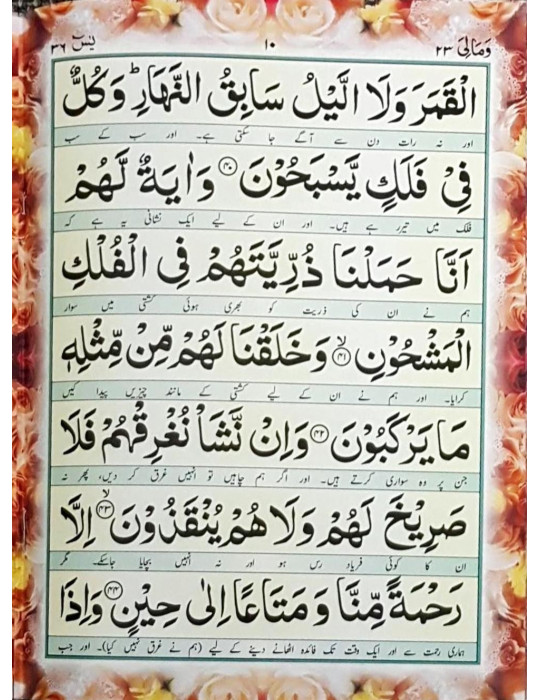 وَمَالِیَ ۲۳ ۱۰ یٰسٓ ۳۶
الْقَمَرَ وَلَا الَّیْلُ سَابِقُ النَّهَارِ ؕ وَكُلٌّ
اور نہ رات دن سے آگے جا سکتی ہے۔ اور سب کے سب
فِیْ فَلَكٍ یَّسْبَحُوْنَ ﴿۴۰﴾ وَاٰیَةٌ لَّهُمْ
فلک میں تیر رہے ہیں۔ اور ان کے لیے ایک نشانی یہ ہے کہ
اَنَّا حَمَلْنَا ذُرِّیَّتَهُمْ فِی الْفُلْكِ
ہم نے ان کی ذریت کو بھری ہوئی کشتی میں سوار
الْمَشْحُوْنِ ﴿ۙ۴۱﴾ وَخَلَقْنَا لَهُمْ مِّنْ مِّثْلِهٖ
کرایا۔ اور ہم نے ان کے لیے کشتی کے مانند چیزیں پیدا کیں
مَا یَرْكَبُوْنَ ﴿۴۲﴾ وَاِنْ نَّشَاْ نُغْرِقْهُمْ فَلَا
جن پر وہ سواری کرتے ہیں۔ اور اگر ہم چاہیں تو انہیں غرق کر دیں، پھر نہ
صَرِیْخَ لَهُمْ وَلَا هُمْ یُنْقَذُوْنَ ﴿ۙ۴۳﴾ اِلَّا
ان کا کوئی فریاد رس ہو اور نہ انہیں بچایا جاسکے۔ مگر
رَحْمَةً مِّنَّا وَمَتَاعًا اِلٰی حِیْنٍ ﴿۴۴﴾ وَاِذَا
ہماری رحمت سے اور ایک وقت تک فائدہ اٹھانے دینے کے لیے (ہم نے غرق نہیں کیا)۔ اور جب